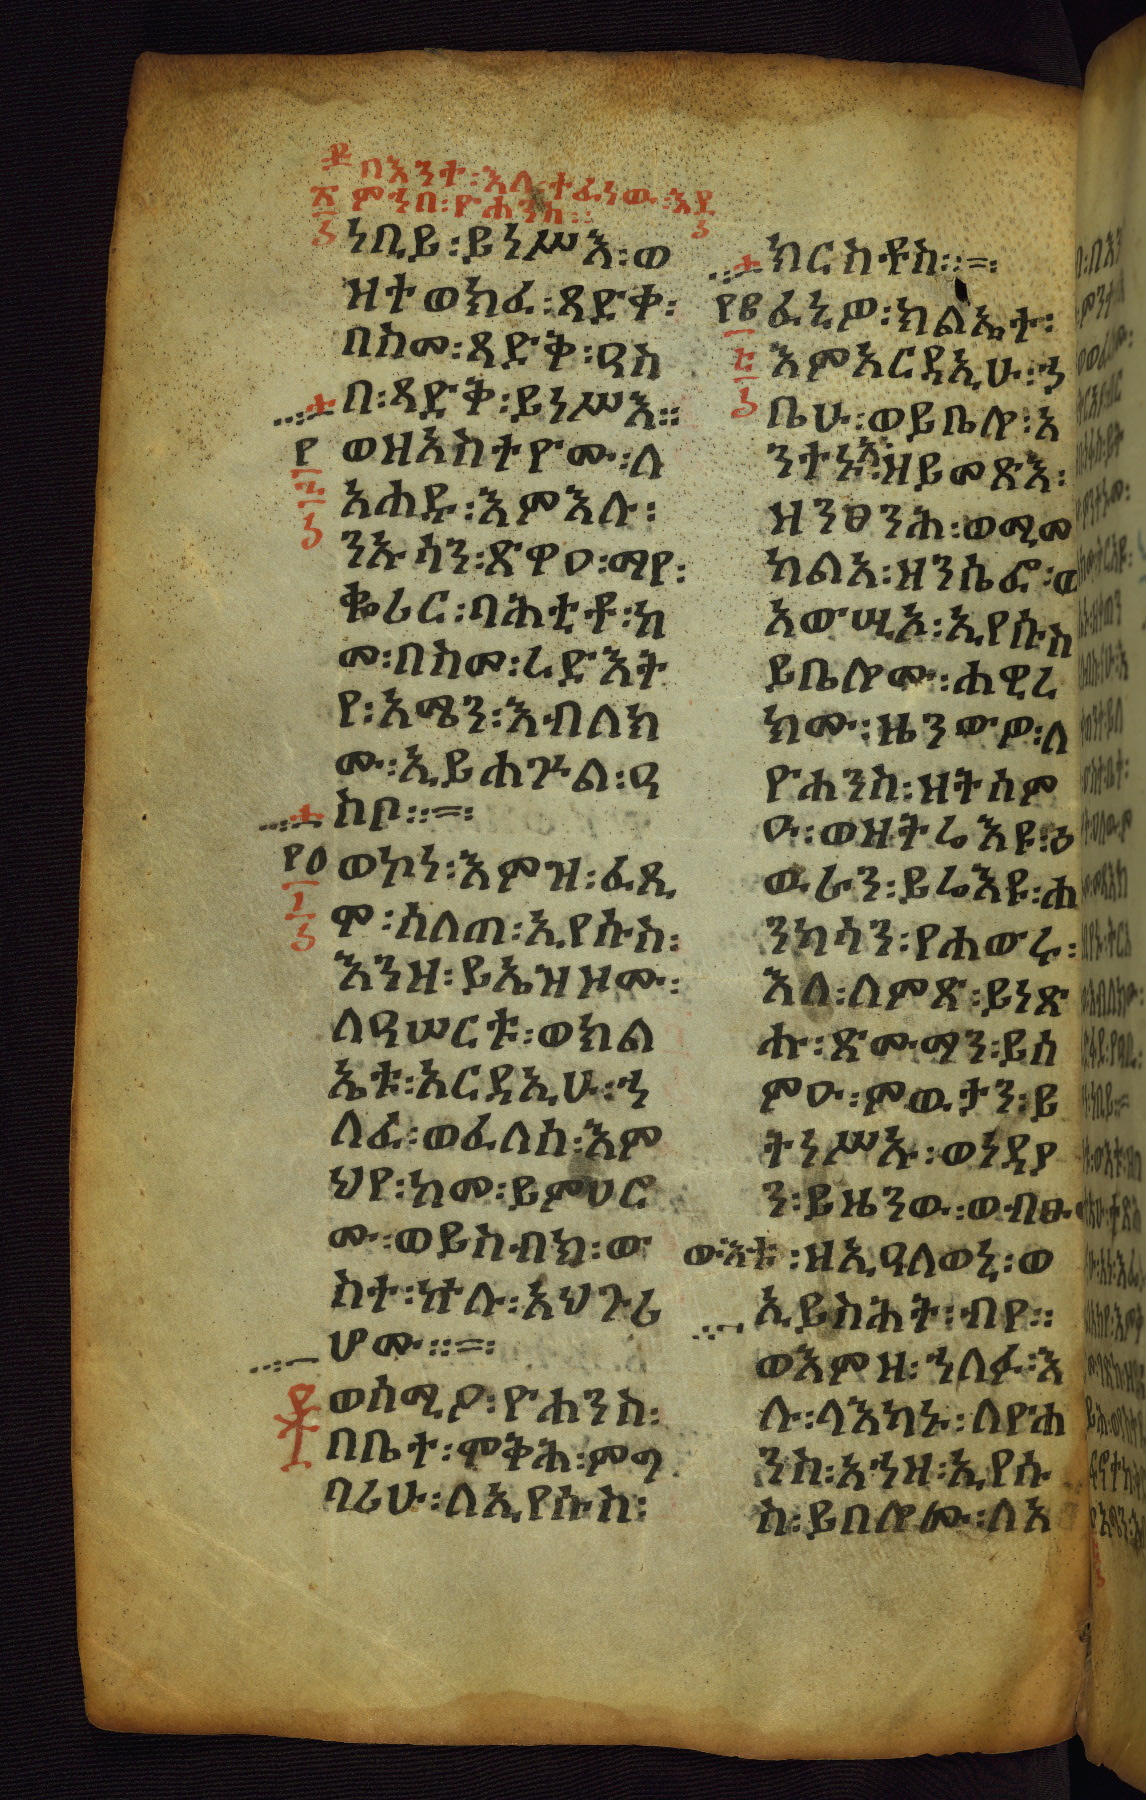 በእንተ፡እለ፡ተፈነዉ፡እ
ምኀበ፡ዮሐንስ፡፡
ነቢይ፡ይነሥእ፡ወ
ዝተወክፈ፡ጻድቀ፡
በስመ፡ጻድቅ፡ዐስ
በ፡ጻድቅ፡ይነሥእ፡፡
ወዘአስተዮሙ፡ለ
አሐዱ፡እምእሉ፡
ንኡሳን፡ጽዋዐ፡ማየ፡
ቈሪር፡ባሕቲቶ፡ከ
መ፡በስመ፡ረድእት
የ፡አሜን፡እብለክ
ሙ፡ኢይሐጕል፡ዐ
ስቦ፡፡=፡
ወኮነ፡እምዝ፡ፈጺ
ሞ፡ሰለጠ፡ኢየሱስ፡
እንዘ፡ይኤዝዞሙ፡
ለዐሠርቱ፡ወክል
ኤቱ፡አርዳኢሁ፡ኀ
ለፈ፡ወፈለሰ፡እም
ህየ፡ከመ፡ይምሀሮ
ሙ፡ወይስብክ፡ው
ስተ፡ኵሉ፡አህጉሪ
ሆሙ፡፡=፡
ወሰሚዖ፡ዮሐንስ፡
በቤተ፡ሞቅሕ፡ምግ
ባሪሁ፡ለኢየሱስ፡
ክርስቶስ፡፡=፡
ፈኒዎ፡ክልኤተ፡
እምአርዳኢሁ፡ኀ
ቤሁ፡ወይቤሎ፡አ
ንተኑ፡ዘይመጽእ፡
ዝንፀንሕ፡ወሚመ
ካልእ፡ዘንሴፎ፡ወ
አውሢአ፡ኢየሱስ
ይቤሎሙ፡ሐዊረ
ክሙ፡ዜንውዎ፡ለ
ዮሐንስ፡ዝትሰም
ዑ፡ወዝትሬእዩ፡ዕ
ዉራን፡ይሬእዩ፡ሐ
ንካሳን፡የሐውሩ፡
እለ፡ለምጽ፡ይነጽ
ሑ፡ጽሙማን፡ይሰ
ምዑ፡ምዉታን፡ይ
ትነሥኡ፡ወነዳያ
ን፡ይዜንዉ፡ወብፁዕ
ውእቱ፡ዘኢዐለወኒ፡ወ
ኢይስሕት፡ብየ፡፡
ወእምዝ፡ኀለፉ፡እ
ሉ፡ላእካኑ፡ለዮሐ
ንስ፡አኀዘ፡ኢየሱ
ስ፡ይበሎሙ፡ለአ